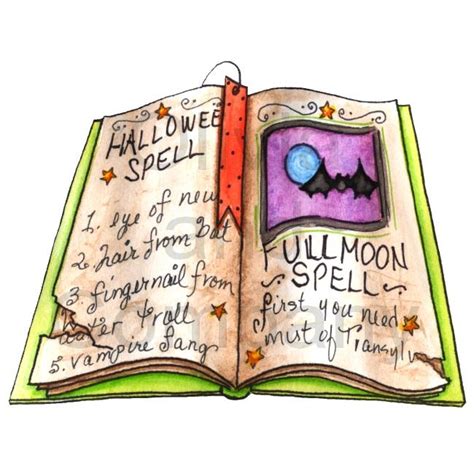 HALLOWEE
SPELL
1. eye of new
2. hair from bat
3. fingernail from
ater troll
5. vampire fang
FULLMOON
SPELL
first you need
mist of Transylv